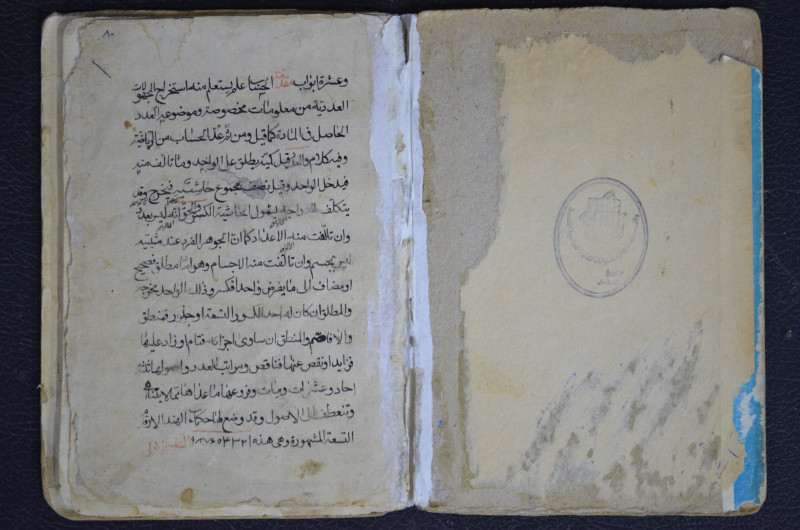 ٨٠
وعشرة ابواب مقدمة الحساب علم يستعلم منه استخراج المجهولات
العددية من معلومات مخصوصة وموضوعه العدد
الحاصل في المادة كما قيل ومن ثم عد الحساب من الرياضي
وفيه كلام والعدد قيل كمية يطلق على الواحد وما تالف منه
فيدخل الواحد وقيل نصف مجموع حاشيتيه فيخرج وقد
يتكلف الواحد بشمول الحاشية الكسر والحق انه ليس بعدد
وان تالفت منه الاعداد كما ان الجوهر الفرد عند مثبتيه
ليس بجسم وان تالفت منه الاجسام وهو اما مطلق فصحيح
او مضاف الى ما يفرض واحدا فكسر وذلك الواحد مخرجه
والمطلق ان كان له احد الكسور التسعة او جذر فمنطق
والا فاصم والمنطق ان ساوى اجزائه فتام او زاد عليها
فزايد او نقص عنها فناقص ومراتب العدد اصولها ثلثة
احاد وعشرات ومات وفروعها ما عداها مما لا يتناهى
وتنعطف الى الاصول وقد وضع لها حكماء الهند الارقام
التسعة المشهورة وهي هذه ١ ٢ ٣ ٤ ٥ ٦ ٧ ٨ ٩